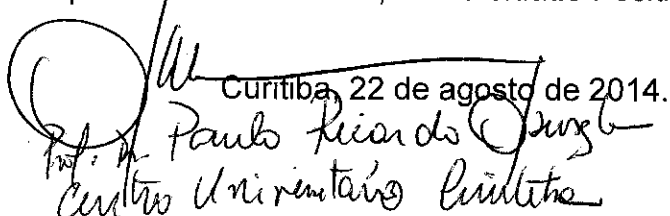 Curitiba, 22 de agosto de 2014.
Prof. Dr. Paulo Ricardo Opuszka
Centro Universitário Curitiba